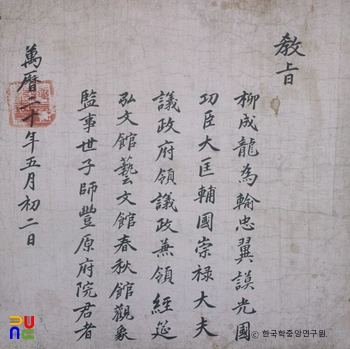 敎旨
柳成龍為輸忠翼謨光國
功臣大匡輔國崇祿大夫
議政府領議政兼領經筵
弘文館藝文館春秋館觀象
監事世子師豐原府院君者
萬曆二十年五月初二日
© 한국학중앙연구원